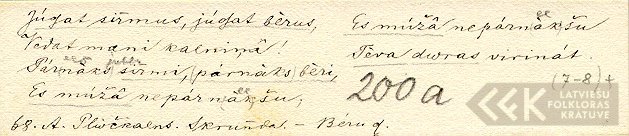 Jūgat sirmus, jūgat bērus,
Vedat mani kalniņā!
Pārnāks sirmi, (pārnāks) bēri,
Es mūžā nepārnākšu,
Es mūžā nepārnākšu
Tēva dwras virināt.
200a
(7-8)+
68. A. Plivčkalns. Skrunda. - Bēru q.
LATVIEŠU
FOLKLORAS
KRĀTUVE